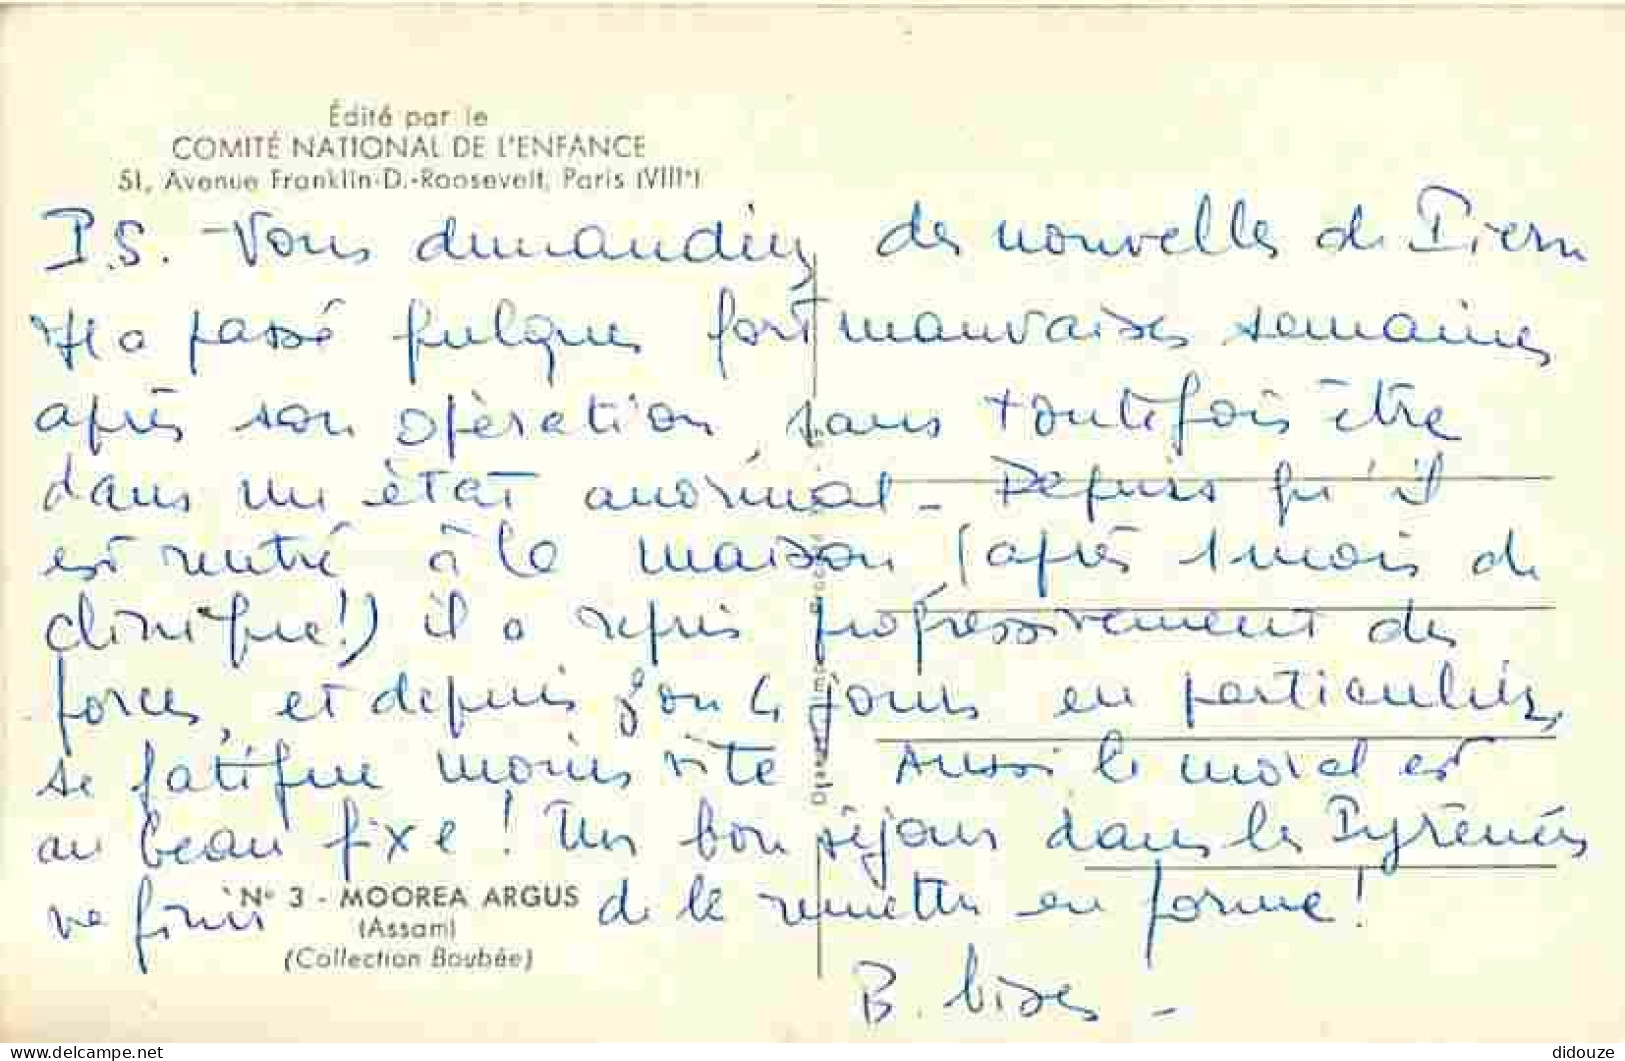 Édité par le
COMITÉ NATIONAL DE L'ENFANCE
51, Avenue Franklin-D.-Roosevelt, Paris (VIIIe)
P.S. - Vous demandiez des nouvelles de Pierre
Il a passé quelques fort mauvaises semaines
après son opération sans toutefois être
dans un état anormal - Depuis qu'il
est rentré à la maison (après 1 mois de
clinique!) il a repris progressivement des
forces, et depuis 3 ou 4 jours en particulier,
se fatigue moins vite Aussi le moral est
au beau fixe ! Un bon séjour dans les Pyrénées
va finir de le remettre en forme !
B. bises -
N° 3 - MOOREA ARGUS
(Assam)
(Collection Boubée)
delcampe.net
didouze